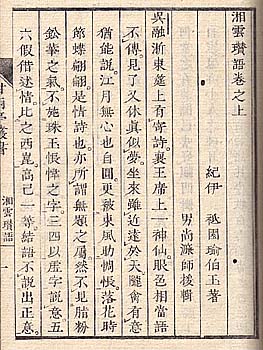 湘雲瓚語卷之上
紀伊　祇園瑜伯玉著
男尚濂師援輯
吳融浙東筵上有寄詩襄王席上一神仙眼色相當語
不傳見了又休真似夢坐來雖近遠於天隴禽有意
猶能說江月無心也自圓更被東風勸惆悵落花時
節蝶翩翩是情詩也亦所謂無題之屬然不見脂粉
鉛華之氣不珠玉之字三四以虛字說意五
六假借述情比之西崑高已一等結語不說出正意
湘雲瓚語　一